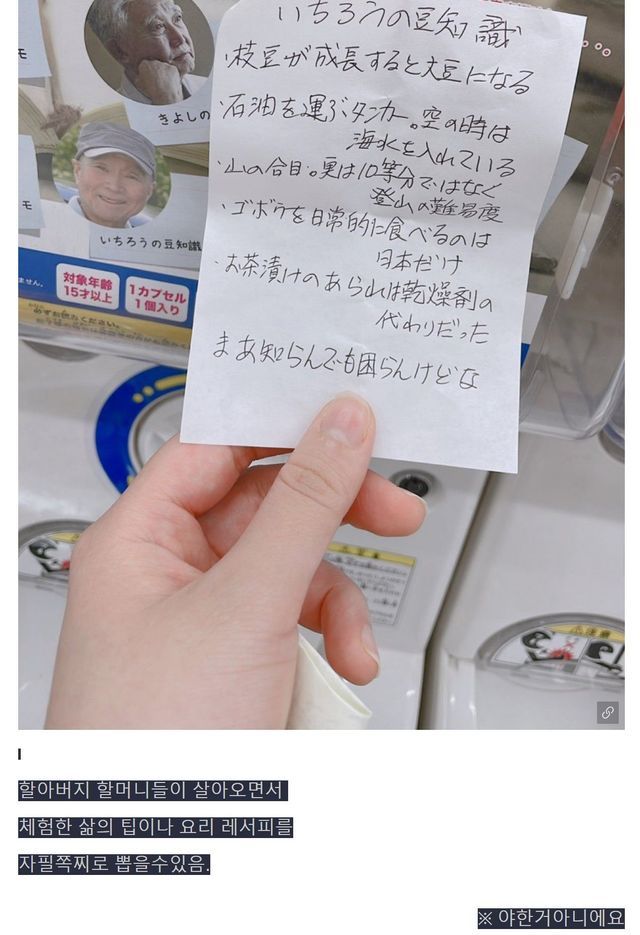 いちろうの豆知識
・枝豆が成長すると大豆になる
・石油を運ぶタンカー。空の時は
海水を入れている
・山の合目。実は10等分ではなく
登山の難易度
・ゴボウを日常的に食べるのは
日本だけ
・お茶漬けのあられは乾燥剤の
代わりだった
まあ知らんでも困らんけどな
モ
きよしの
モ
いちろうの豆知識
ません。
対象年齢
15才以上
1カプセル
1個入り
必ずお読みください。
할아버지 할머니들이 살아오면서
체험한 삶의 팁이나 요리 레서피를
자필쪽찌로 뽑을수있음.
※ 야한거아니에요